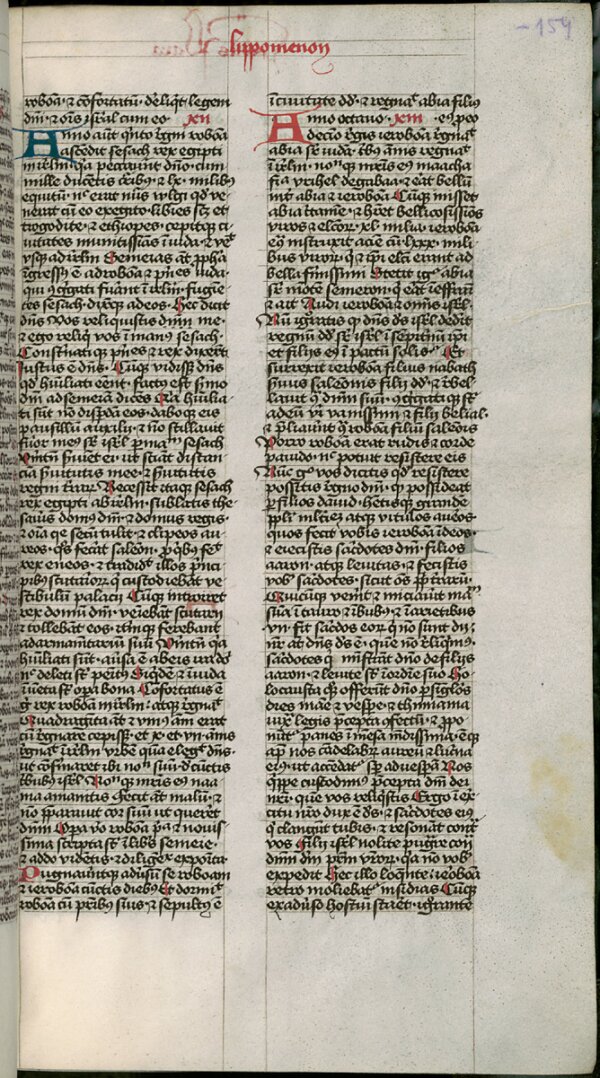 lippomenon
159
roboā ⁊ cōfortatū deliq̄t legem
dn̄i ⁊ oīs isrl̄ cum eo xii
Anno aūt q̄nto regni roboā
ascēdit sesach rex egipti
ī irlm̄ q̄a peccauit dn̄o cum
mille ducētis cr̄ibꝰ ⁊ lx milibꝰ
equitū nᶜ erat nūs wlgi qd̓ ve
nerat cū eo ex egipto libies sꝫ et
trogodite ⁊ ethiopes cepitqꝫ ci
uitates munitissīas ī iuda ⁊ ve
vsqꝫ ad irlm̄ Semeias at̄ ꝓpha
īgressꝰ ē ad roboā ⁊ pn̄cipes iuda
qui ꝯg̓gati fuānt ī irlm̄ fugiē
tes sesach dixitqꝫ ad eos Hec dicit
dn̄s Vos reliquistis dimi me
⁊ ego reliq̄ vos ī manꝰ sesach
Consternatiqꝫ pn̄cipes ⁊ rex dixerūt
Iustus ē dn̄s Cūqꝫ vidissꝫ dn̄s
qd̓ hūiliati eēnt factꝰ est ẜmo
dn̄i ad semeiā dicēs Q̄a hūilia
ti sūt nō disꝑdā eos daboqꝫ eis
pausillū auxilij ⁊ nō stillauit
furor meꝰ sꝑ isrl̄ ꝑ manū sesach
ut sciāt distan
cia ẜuitutis mee ⁊ ẜuitutis
regni trarꝫ Recessit itaqꝫ sesach
rex egipti ab irlm̄ sublatis the
sauris domꝰ dn̄i ⁊ domus regis
⁊ oīa q̄e secū tulit ⁊ clipeos au
reos q̄s fec̓at salomō ꝓ q̄bꝰ fecᵗ
rex eneos ⁊ tradidit illos pn̄ci
pibꝰ scutarioꝝ q̄ custodiebāt ve
stibulū palacij Cūqꝫ introiret
rex domū dn̄i veniebāt scutarij
⁊ tollebāt eos itm̄qꝫ referebant
ad armamētariū suū
hūiliati sūt auersa ē ab eis ira dn̄i
nᶜ deleti sūt penitꝰ Siq̄dē ⁊ ī iuda
īuēta sūt opa bona Cōfortatus ē
g̓ rex roboā in irlm̄ atqꝫ regᵗ
Quadraginta at̄ ⁊ vniꝰ ānī erat
cū regnare cepissꝫ ⁊ x ⁊ vii annis
regnauit ī irlm̄ vrbē quā elegᵗ dn̄s
ut cōfirmaret ibi nomē suū d̓ cūctis
tribubꝰ isrl̄ Nomē mr̄is eiꝰ naa
ma amanitis Fecit at̄ malū ⁊
nō p̄parauit cor suū ut quereret
dīnm Opa v̓o roboā p̄ma ⁊ nouis
sima scripta sūt ī libris semeie ꝓphete
⁊ addo videntis ⁊ diligēter exposita
Pugnauitqꝫ aduersū se roboam
⁊ ieroboā cūctis diebꝰ Et dormiᵗ
roboā cū pribꝰ suis ⁊ sepultꝰ ē
ī ciuitate dd̄ ⁊ regnaᵗ abia filiꝰ
Anno octauo xiii eiꝰ ꝓ eo
decīo regis ieroboā regnaᵗ
abia sꝑ iudā tribꝰ annis regnaᵗ
ī irlm̄ nomēqꝫ mr̄is eiꝰ maacha
filia vrihel de gabaa ⁊ erat bellū
int̓ abia ⁊ ieroboā Cūqꝫ inissꝫ
abia ctamē ⁊ hr̄et bellicosissīos
viros ⁊ electorꝫ xl milia ieroboā
ex̄ instruxit aciē cū lxxx mili
bus virorꝫ q̄ ⁊ ip̄i elc̄i erant ad
bella fīmissimi Stetit igᵗ abia
sꝑ mōtē semeron q̄ erat ī effraī
⁊ ait Audi ieroboā ⁊ omīs isrl̄
Nū ignoratis qꝫ dn̄s ds̄ isrl̄ dedit
regnū dd̄ sꝑ isrl̄ ī sēpiternū ip̄i
et filijs eiꝰ ī pactū salis Et
surrexit ieroboā filius nabath
seruus salomonis filij dd̄ ⁊ rebel
lauit ꝯ dīnm suū ꝯg̓gatiqꝫ sūt
ad eū viri vanissimi ⁊ filij belial
⁊ p̄ualuerūt ꝯ roboā filiū salōis
Porro roboā erat rudis ⁊ corde
pauido nᶜ potuit resistere eis
Nūc g̓ vos dicitis qd̓ resistere
possitis regno dn̄i qd̓ possidet
ꝑ filios dauid hētisqꝫ grandē
ppl̄i ml̄titudinē atqꝫ vitulos aureos
quos fecit vobis ieroboā ī deos
⁊ eiecistis sac̓dotes dn̄i filios
aaron atqꝫ leuitas ⁊ fecistis
vob̄ sac̓dotes sicut oēs ppl̄i trarū
Quicūqꝫ ven̓it ⁊ iniciauit manū
suā ī tauro ⁊ ī bubꝰ ⁊ ī arietibus
vii fit sac̓dos eorꝫ q̄ nō sunt dij
nr̄ at̄ dn̄s ds̄ ē quē nō reliq̄mꝰ
sac̓dotesqꝫ mīstrāt dn̄o de filijs
aaron ⁊ leuite sūt ī ordīe suo ho
locausta qꝫ offerūt dn̄o ꝑ singlōs
dies mane ⁊ vespe ⁊ thimiama
iuxᵃ legis p̄cepta ꝯfectū ⁊ ꝓpo
nūtᵉ panes ī mesa mūdissima ē qꝫ
apud nos cādelabrꝫ aureū ⁊ luc̓na
eiꝰ ut accēdatᵉ sꝑ ad vesꝑā Nos
q̄ppe custodimꝰ p̄cepta dn̄i dei
nr̄i quē vos reliq̄stis Ergo ī ex̓
citu nr̄o dux ē ds̄ ⁊ sac̓dotes eiꝰ
q̄ clangūt tubis ⁊ resonāt contᵃ
vos Filij isrl̄ nolite pugnare con
dīnm dīm pr̄m vr̄orꝫ q̄a nō vob̄
expedit Hec illo loquēte ieroboā
retro moliebatᵉ insidias Cūqꝫ
ex aduerso hostiū staret ignorante